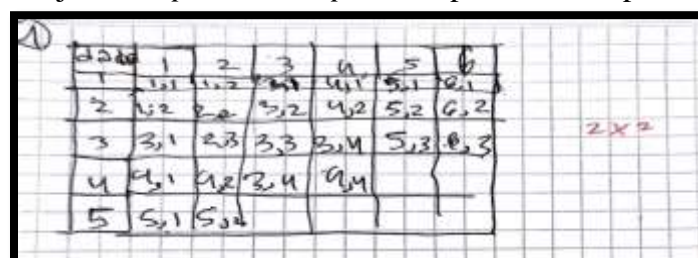 1
dado 1 2 3 4 5 6
1 1,1 1,2 3,1 4,1 5,1 6,1
2 1,2 2,2 3,2 4,2 5,2 6,2
3 3,1 2,3 3,3 3,4 5,3 6,3
4 4,1 4,2 3,4 4,4
5 5,1 5,2
2x2